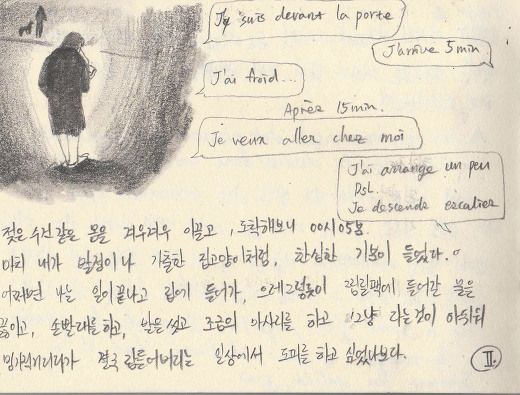 Je suis devant la porte
J'arrive 5 min
J'ai froid...
Après 15 min.
Je veux aller chez moi
J'ai arrangé un peu
DSL
Je descends escalier
젖은 수건같은 몸을 겨우겨우 이끌고, 도착해보니 00시05분.
마치 내가 말썽이나 가출한 집고양이처럼, 한심한 기분이 들었다.
어쩌면 나는 일이 끝나고 집에 들어가, 으레 그렇듯이 찜질팩에 들어갈 물을
끓이고, 손빨래를 하고, 발을 씻고 조금의 마사지를 하고 그냥 자는것이 아쉬워
밍기적거리다가 결국 잠들어버리는 일상에서 도피를 하고 싶었나보다.
II.